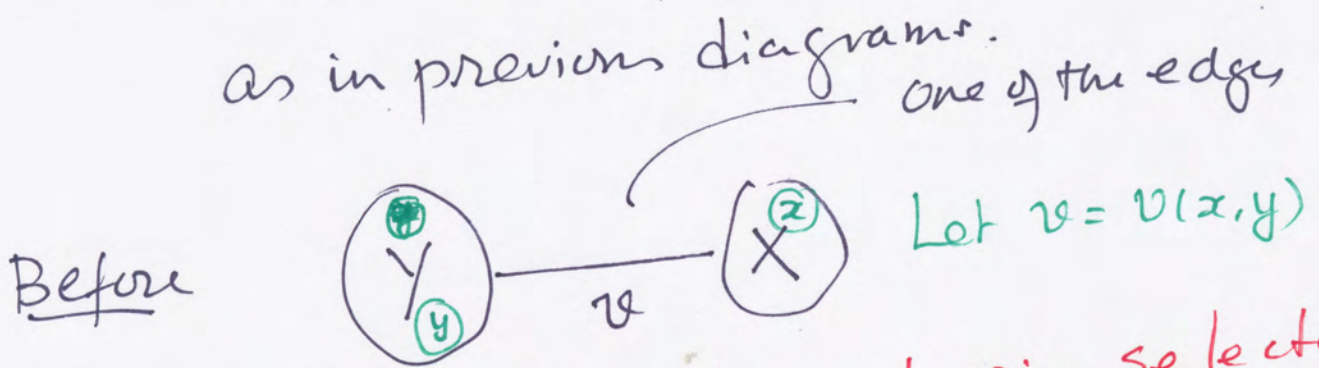 as in previous diagrams.
one of the edges
Before
Y
y
v
X
x
Let v = v(x,y)
selecte